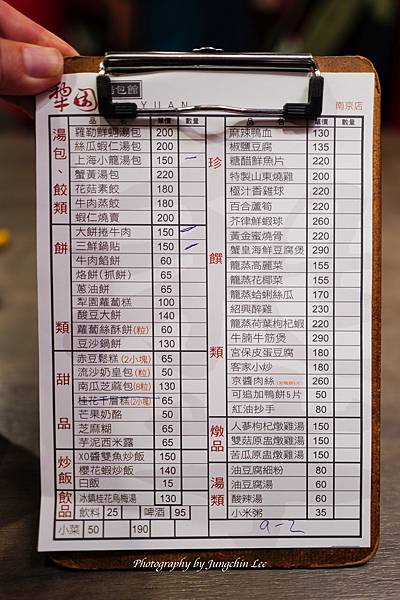 犂园 湯包館
YUAN
南京店
品 名 單價 數量
湯包、餃類
羅勒鮮蚵湯包 200
絲瓜蝦仁湯包 200
上海小籠湯包 150
蟹黃湯包 220
花菇素餃 180
牛肉蒸餃 180
蝦仁燒賣 200
餅類
大餅捲牛肉 150
三鮮鍋貼 150
牛肉餡餅 60
烙餅(抓餅) 65
蔥油餅 65
犁園蘿蔔糕 100
酸豆大餅 140
蘿蔔絲酥餅(粒) 60
豆沙鍋餅 130
甜品
赤豆鬆糕(2小塊) 65
流沙奶皇包(粒) 50
南瓜芝麻包(8粒) 130
桂花千層糕(2小塊) 65
芒果奶酪 50
芝麻糊 65
芋泥西米露 65
炒飯
XO醬雙魚炒飯 150
櫻花蝦炒飯 140
白飯 15
飲品
冰鎮桂花烏梅湯 130
飲料 25 啤酒 95
小菜 50 190
品 名 單價 數量
珍饌類
麻辣鴨血 130
椒鹽豆腐 135
糖醋鮮魚片 220
特製山東燒雞 220
極汁香雞球 220
百合蘆筍 220
芥律鮮蝦球 260
黃金蜜燒骨 220
蟹皇海鮮豆腐煲 290
龍蒸高麗菜 155
龍蒸花椰菜 155
龍蒸蛤蜊絲瓜 170
紹興醉雞 230
龍蒸荷葉枸杞蝦 220
牛腩牛筋煲 290
宮保皮蛋豆腐 180
客家小炒 180
京醬肉絲 260
可追加鴨餅5片 50
紅油抄手 80
燉品
人蔘枸杞燉雞湯 150
雙菇原盅燉雞湯 150
苦瓜原盅燉雞湯 150
湯類
油豆腐細粉 80
油豆腐湯 60
酸辣湯 60
小米粥 35
9-2
Photography by Jungchin Lee